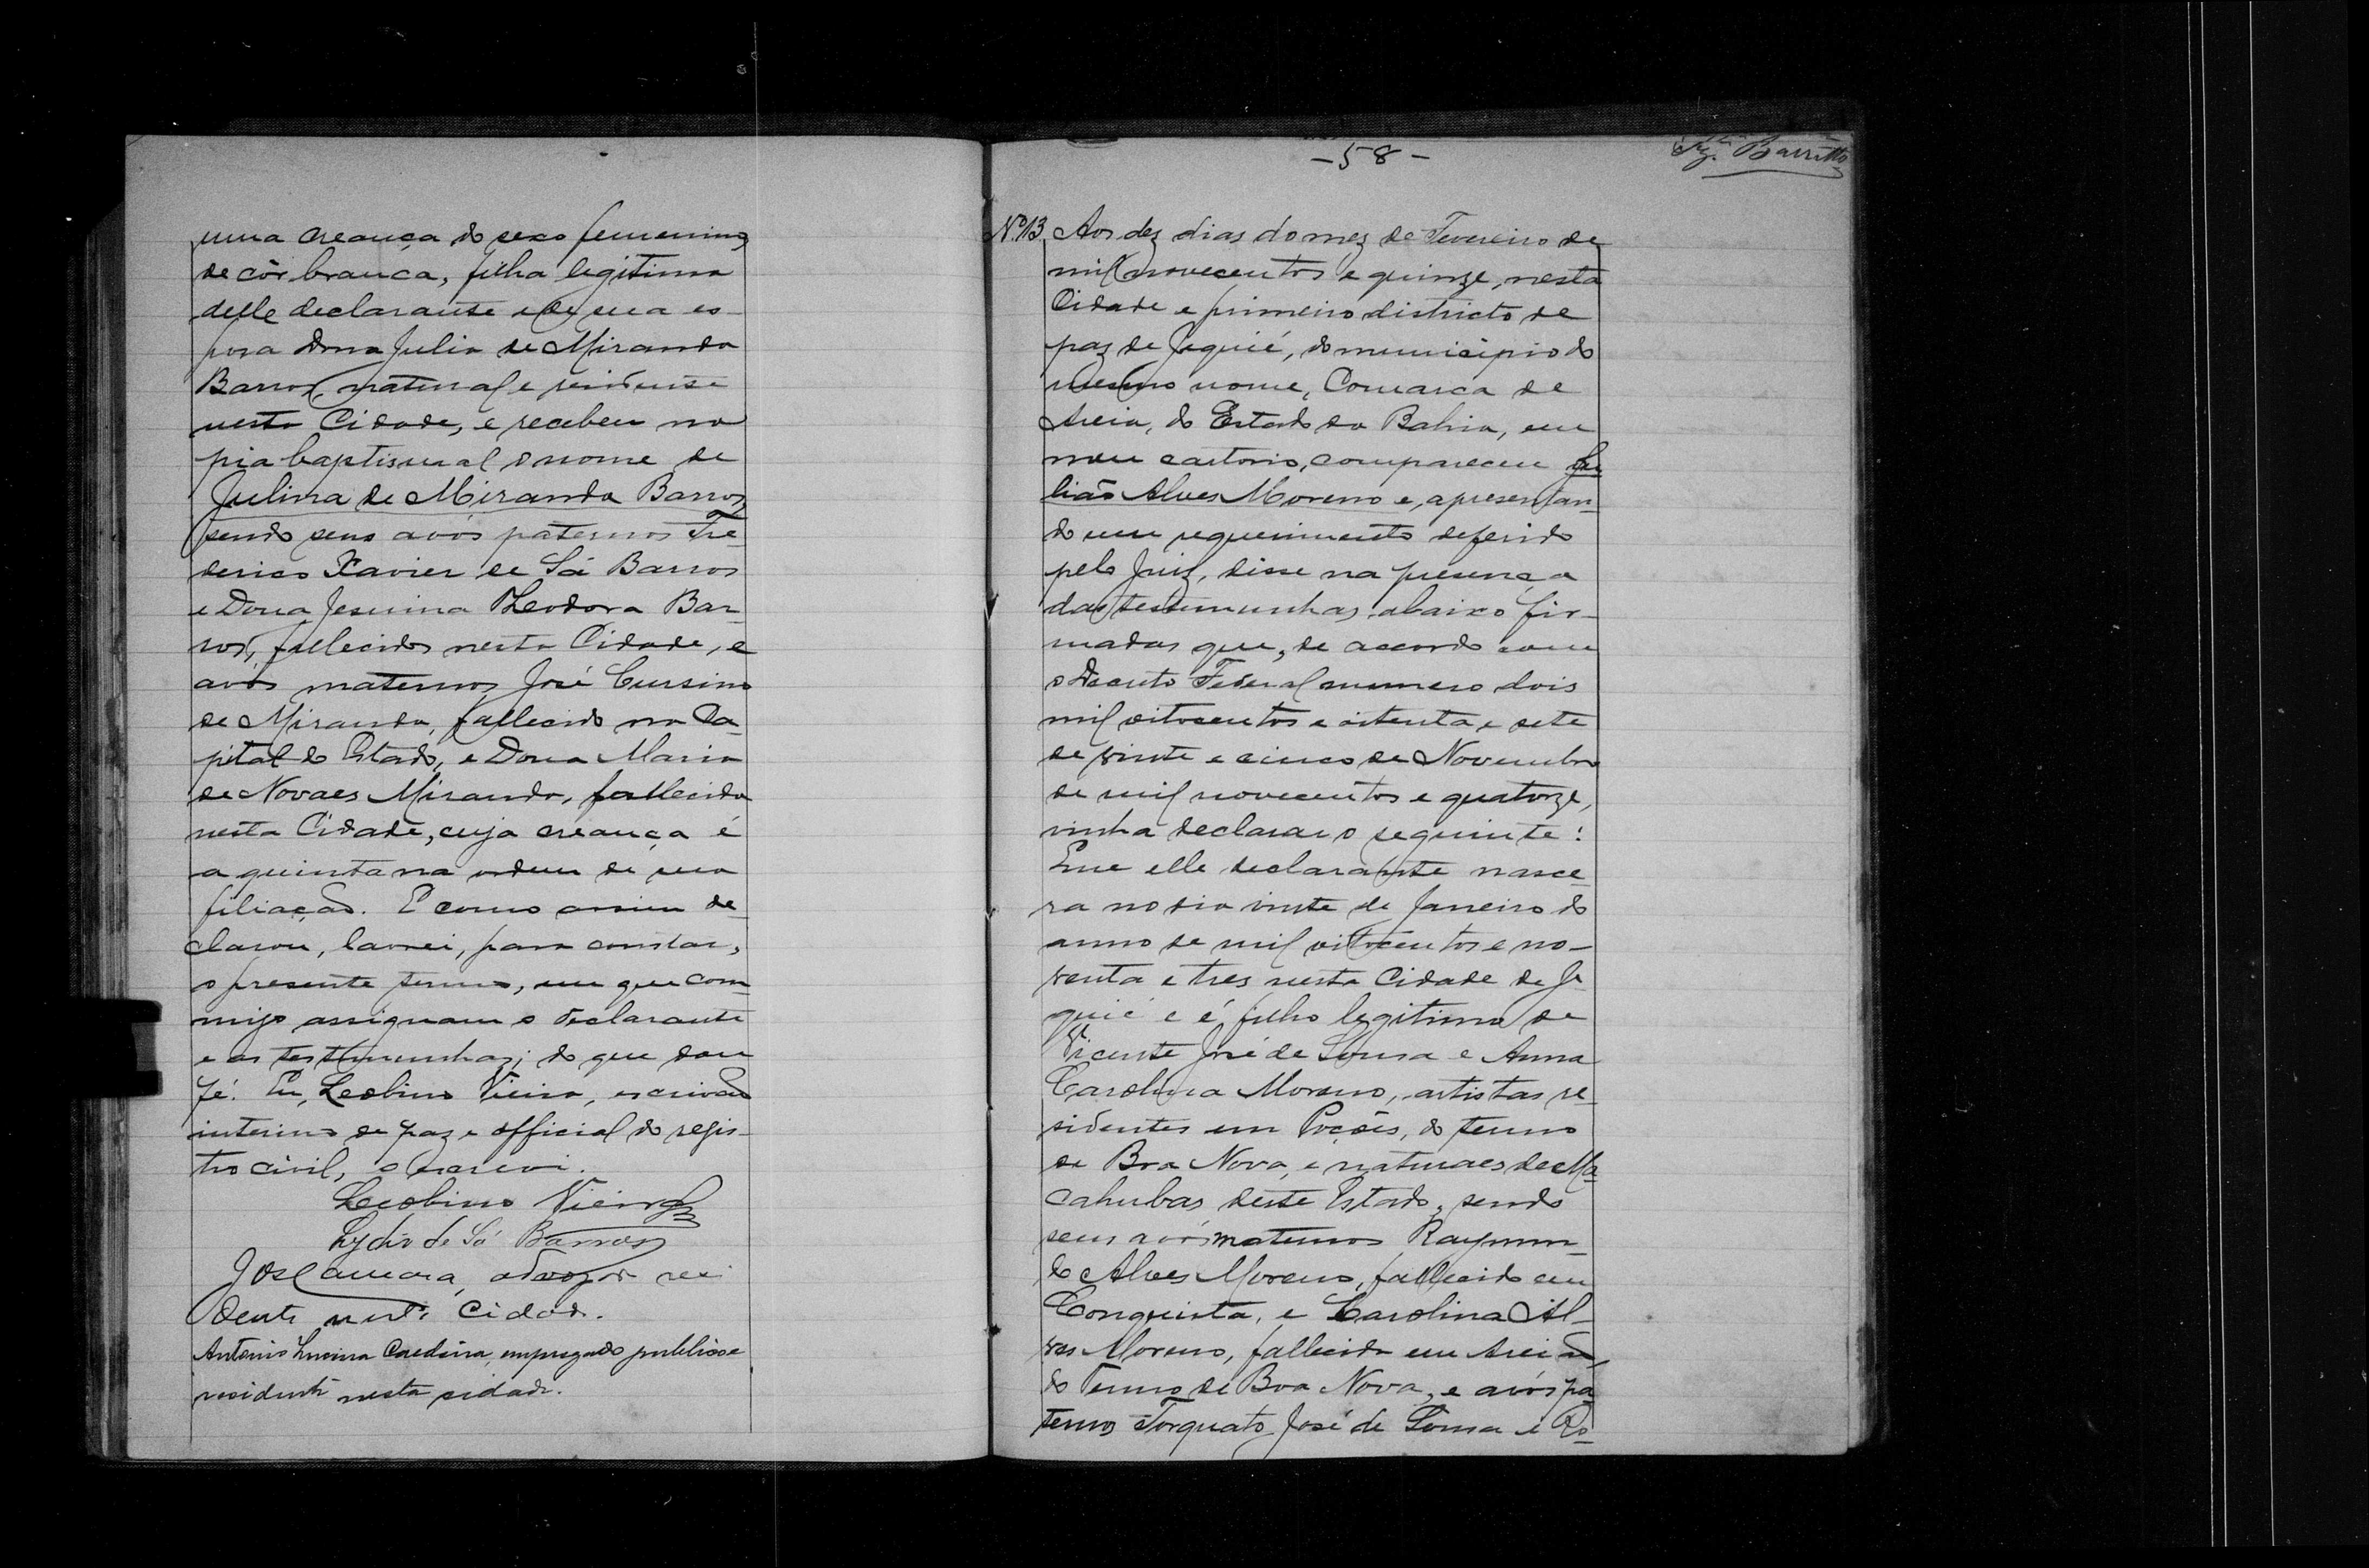 uma creança do sexo femenino,
de côr branca, filha legitima
delle declarante e de sua es-
posa Dona Julia de Miranda
Barros, natural e residente
nesta Cidade, e recebeu na
pia baptismal o nome de
Julina de Miranda Barros,
sendo seus avós paternos Fre-
derico Xavier de Sá Barros
e Dona Jesuina Theodora Bar-
ros, fallecidos nesta Cidade, e
avós maternos José Cursino
de Miranda, fallecido na Ca-
pital do Estado, e Dona Maria
de Novaes Miranda, fallecida
nesta Cidade, cuja creança é
a quinta na ordem de sua
filiação. E como assim de-
clarou, lavrei, para constar,
o presente termo, em que com-
migo assignam o declarante
e as testemunhas; do que dou
fé. Eu, Leobino Vieira, escrivão
interino de paz e official do regis-
tro civil, o escrevi.
Leobino Vieira
Lydio de Sá Barros
José Camara, advogado resi
dente nesta Cidade.
Antonio Caldeira, empregado publico e
residente nesta cidade.
-58-
Barretto
Nº 13 Aos dez dias do mez de Fevereiro de
mil novecentos e quinze, nesta
Cidade e primeiro districto de
paz de Jequié, do municipio do
mesmo nome, Comarca de
Areia, do Estado da Bahia, em
meu cartorio, compareceu Ju
lião Alves Moreno e, apresentan-
do um requerimento deferido
pelo Juiz, disse na presença
das testemunhas abaixo fir-
madas que, de accordo com
o Decreto Federal numero dois
mil oitocentos e oitenta e sete
de vinte e cinco de Novembro
de mil novecentos e quatorze,
vinha declarar o seguinte:
Que elle declarante nasce-
ra no dia vinte de Janeiro do
anno de mil oitocentos e no-
venta e tres nesta Cidade de Je
quié e é filho legitimo de
Vicente José de Sousa e Anna
Carolina Moreno, artistas re-
sidentes em Poções, do termo
de Boa Nova, e naturaes de Ma-
cahubas deste Estado, sendo
seus avós maternos Raymun-
do Alves Moreno, fallecido em
Conquista, e Carolina Al-
ves Moreno, fallecida em Areião,
do Termo de Boa Nova, e avós pa
ternos Torquato José de Sousa e Ro-